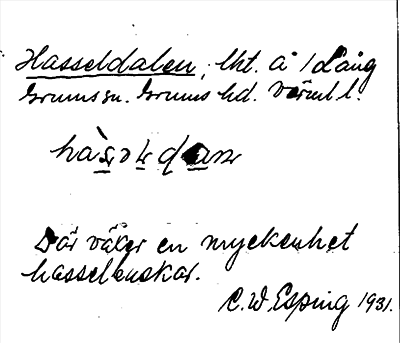 Hasseldalen, lht. å 1 Lång
Grums sn. Grums hd. Värml. l.
Där växer en myckenhet
hasselbuskar.
C. W. Esping 1931.